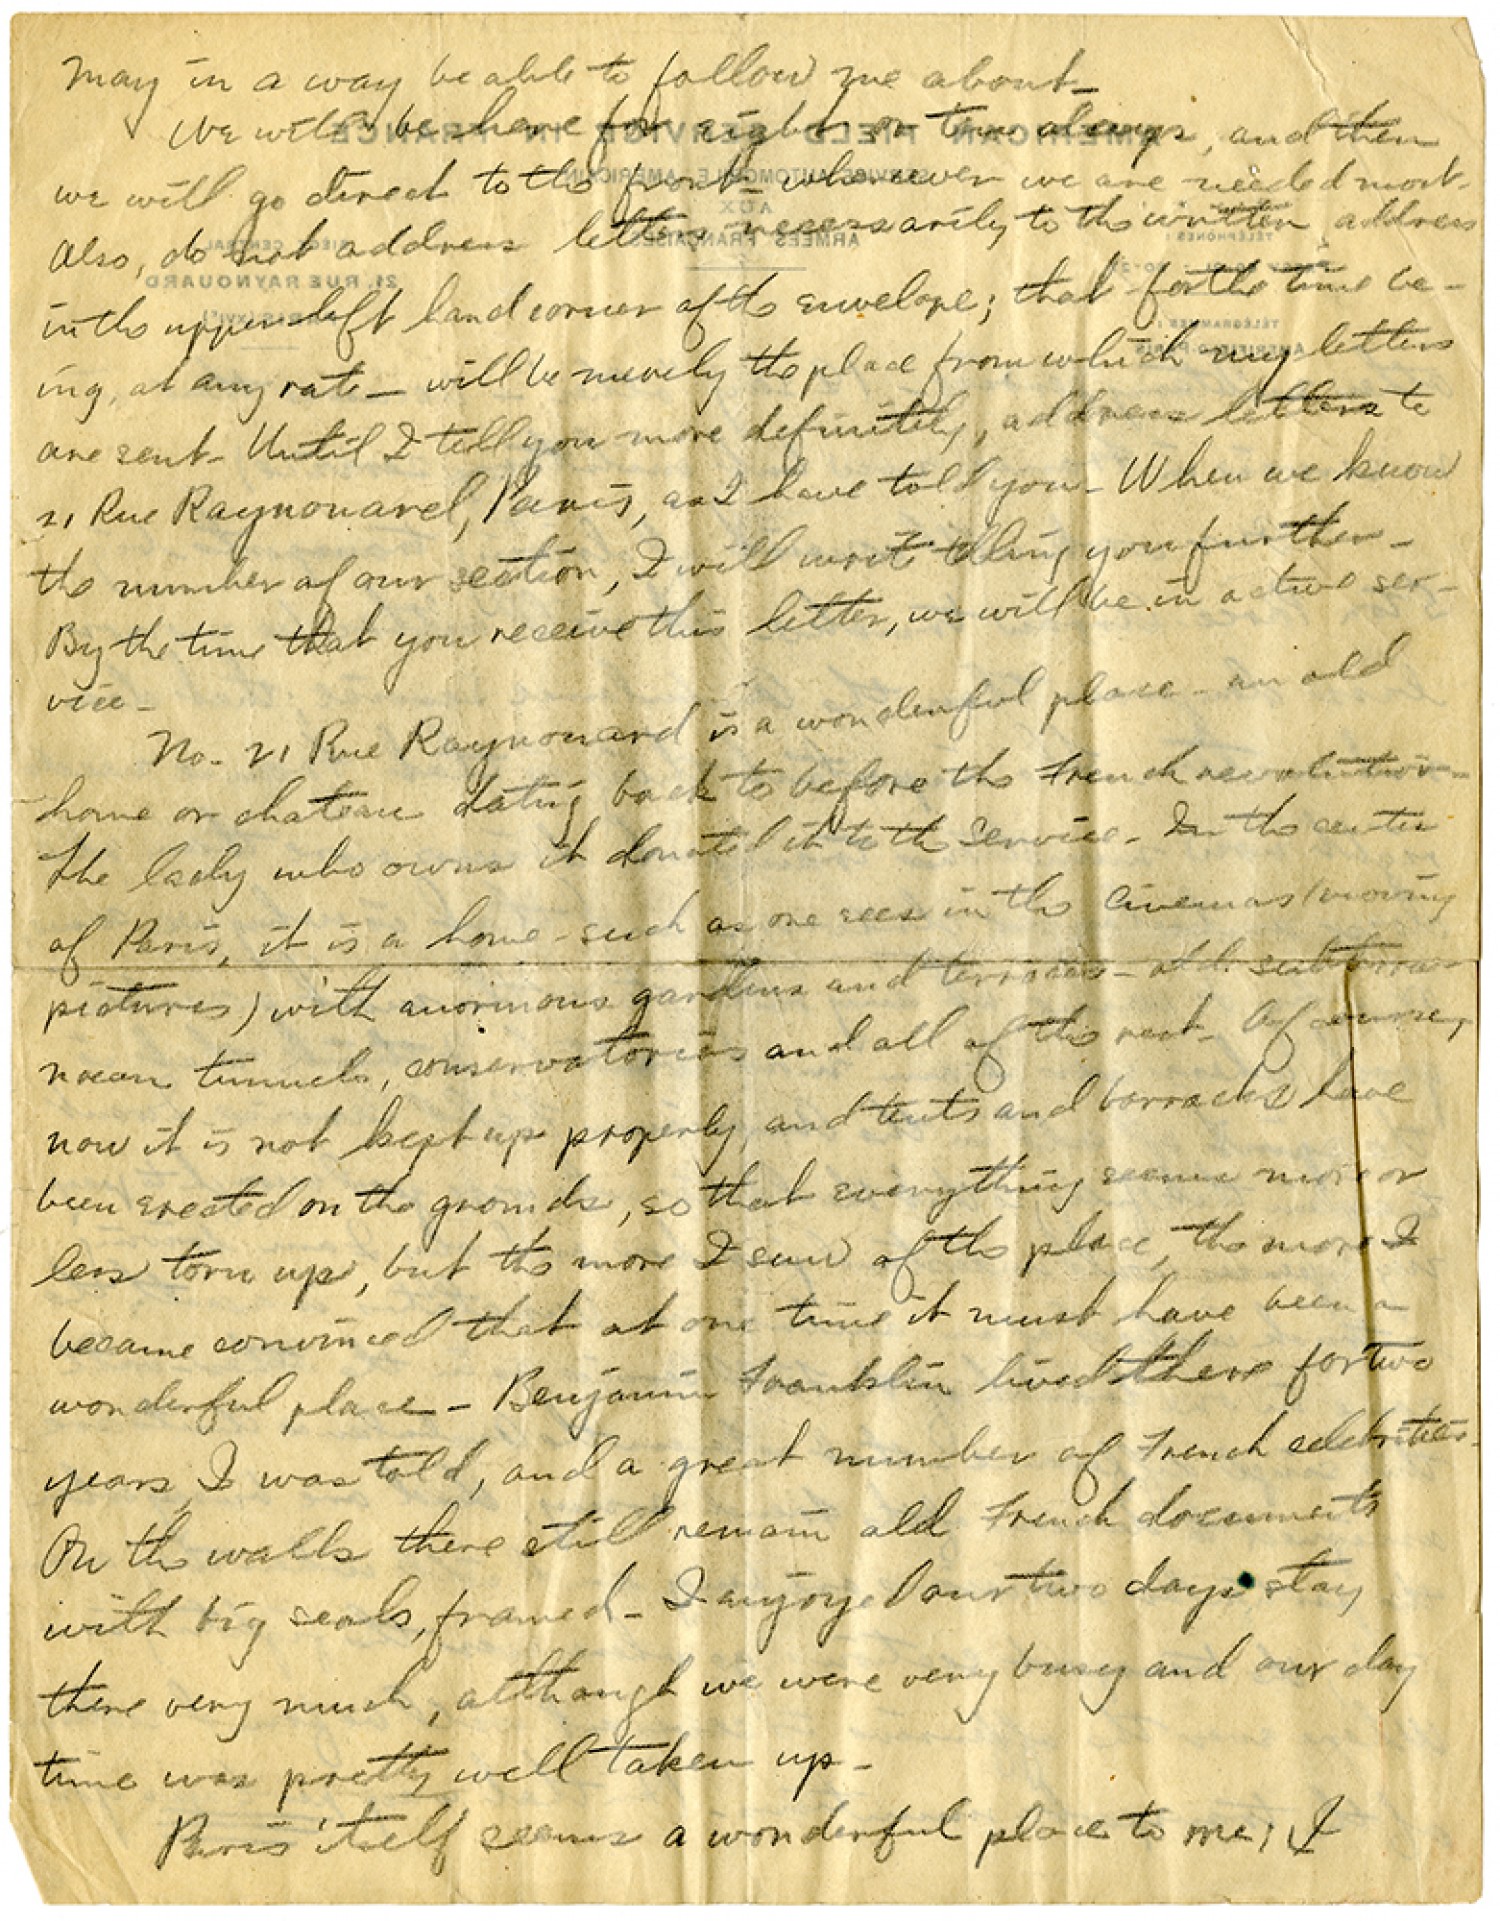 may in a way be able to follow me about_
We will be here for eight or ten days, and then
we will go direct to the front wherever we are needed most-
Also, do not address letters necessarily to the written address
in the upper left hand corner of the envelope; that for the time be-
ing, at any rate - will be merely the place from which my letters
are sent- Until I tell you more definitely, address letters to
21 Rue Raynouard, Paris, as I have told you- When we know
the number of our section, I will write telling you further-
By the time that you receive this letter, we will be in active ser-
vice-
No- 21 Rue Raynouard is a wonderful place - an old
home or chateau dating back to before the French revolution-
The lady who owns it donated it to the Service- In the center
of Paris, it is a home - such as one sees in the cinemas (moving
pictures) with enormous gardens and terraces - old subterra-
nean tunnels, conservatories and all of the rest- Of course,
now it is not kept up properly, and tents and barracks have
been erected on the grounds, so that everything seems more or
less torn up, but the more I saw of the place, the more I
became convinced that at one time it must have been a
wonderful place - Benjamin Franklin lived there for two
years, I was told, and a great number of French celebrities-
On the walls there still remain old French documents
with big seals, framed- I enjoyed our two days stay
there very much, although we were very busy and our day
time was pretty well taken up-
Paris itself seems a wonderful place to me; I
AMERICAN FIELD SERVICE IN FRANCE
SERVICE AUTOMOBILE AMERICAIN
AUX
ARMÉES FRANÇAISES
SIÈGE CENTRAL
21, RUE RAYNOUARD
TÉLÉPHONES :
TÉLÉGRAMMES :